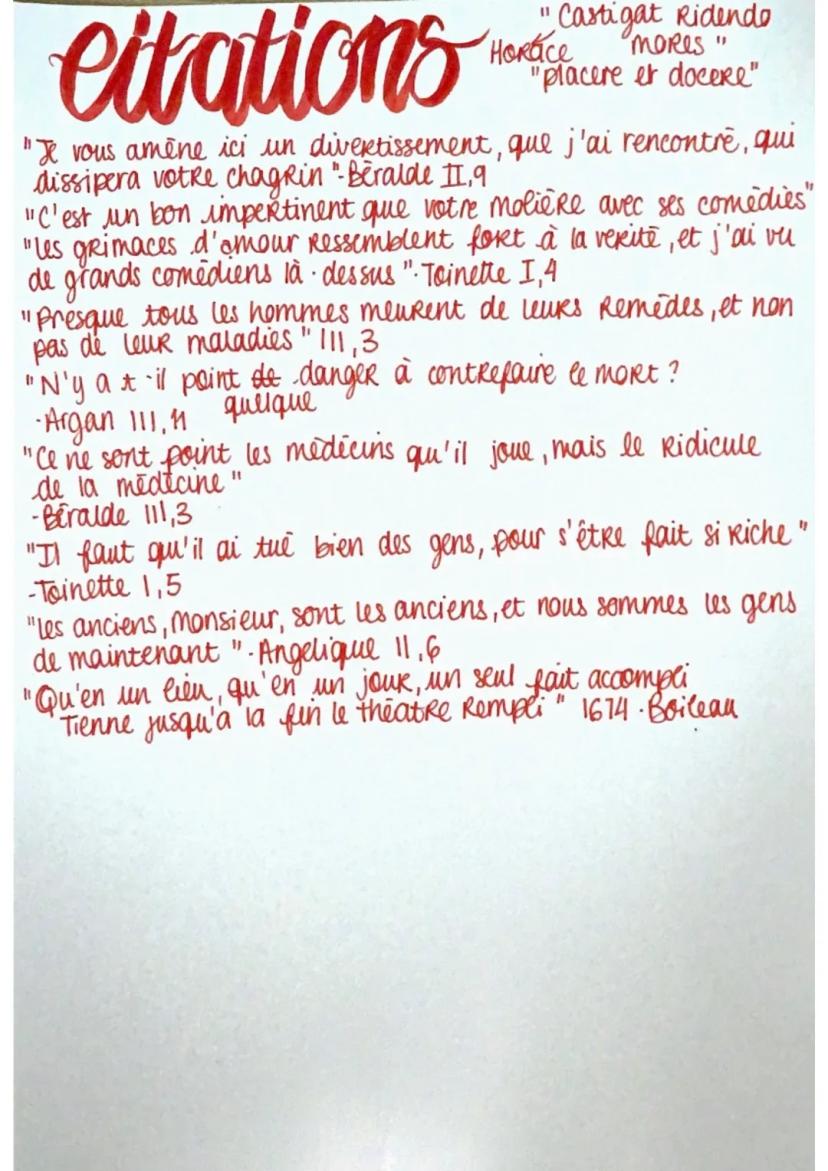 citations
"Castigat Ridendo
Horace mores"
"placere et docere"
"Je vous amène ici un divertissement, que j'ai rencontré, qui
dissipera votre chagrin"-Béralde II,9
"C'est un bon impertinent que votre molière avec ses comédies"
"les grimaces d'amour ressemblent fort à la verité, et j'ai vu
de grands comédiens là-dessus"-Toinette I,4
"Presque tous les hommes meurent de leurs remèdes, et non
pas de leur maladies" III,3
"N'y a t-il point de danger à contrefaire le mort ?
-Argan III,11 quelque
"Ce ne sont point les médecins qu'il joue, mais le ridicule
de la médecine"
-Béralde III,3
"Il faut qu'il ai tué bien des gens, pour s'être fait si riche"
-Toinette I,5
"les anciens, Monsieur, sont les anciens, et nous sommes les gens
de maintenant"-Angelique II,6
"Qu'en un lieu, qu'en un jour, un seul fait accompli
Tienne jusqu'à la fin le théatre rempli" 1674-Boileau